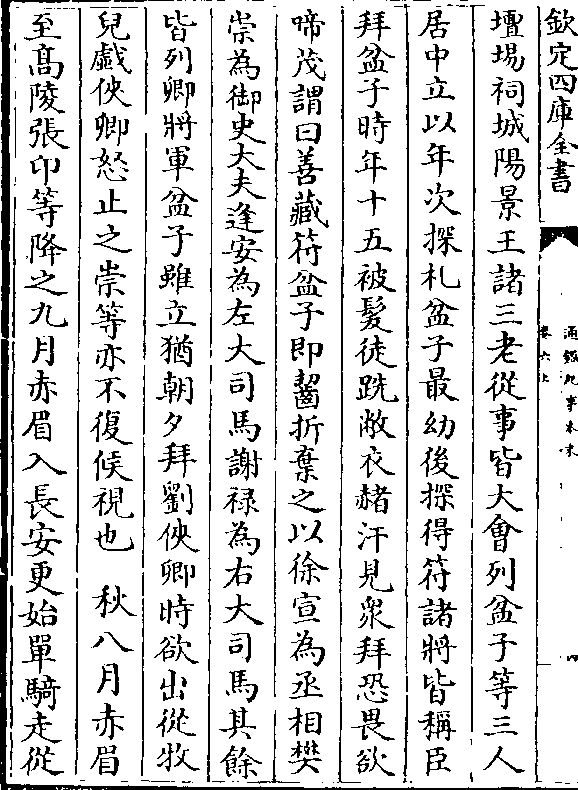 欽定四庫全書
通鑑紀事本末
卷六上
四
壇場祠城陽景王諸三老從事皆大會列盆子等三人
居中立以年次探札盆子最幼後探得符諸將皆稱臣
拜盆子時年十五被髮徒跣敝衣赭汗見衆拜恐畏欲
啼茂謂曰善藏符盆子即齧折棄之以徐宣為丞相樊
崇為御史大夫逄安為左大司馬謝禄為右大司馬其餘
皆列卿將軍盆子雖立猶朝夕拜劉俠卿時欲出從牧
兒戲俠卿怒止之崇等亦不復候視也　秋八月赤眉
至高陵張卬等降之九月赤眉入長安更始單騎走從